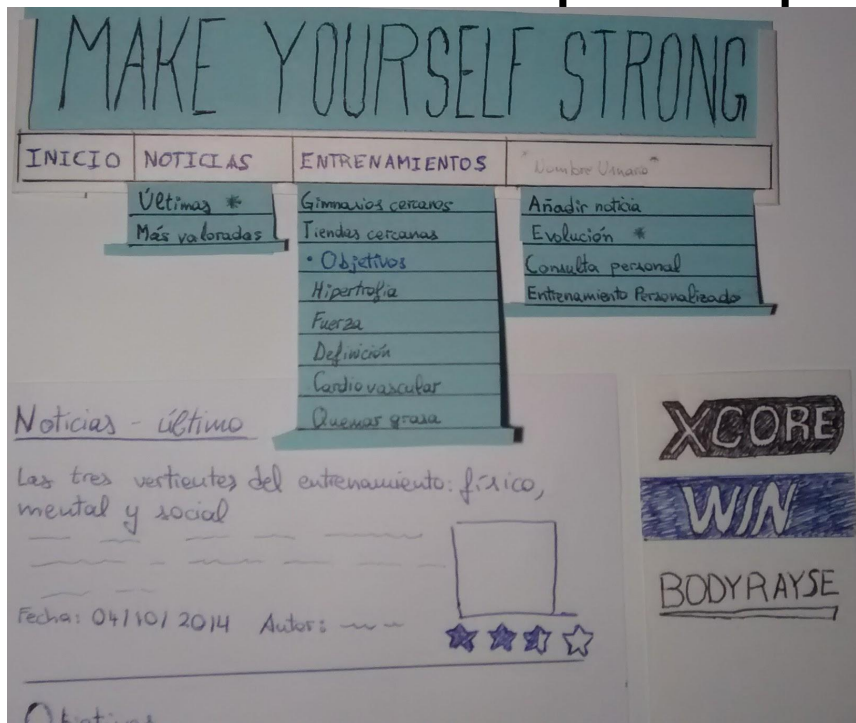 MAKE YOURSELF STRONG
INICIO
NOTICIAS
ENTRENAMIENTOS
"Nombre Usuario"
Últimas *
Más valoradas
Gimnasios cercanos
Tiendas cercanas
• Objetivos
Hipertrofia
Fuerza
Definición
Cardiovascular
Quemar grasa
Añadir noticia
Evolución *
Consulta personal
Entrenamiento Personalizado
Noticias - último
Las tres vertientes del entrenamiento: físico,
mental y social
Fecha: 04/10/2014 Autor:
XCORE
WIN
BODYRAYSE
Objetivos